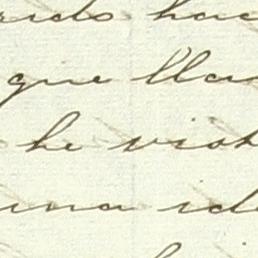 rido hac
que lla
he vist
una ide